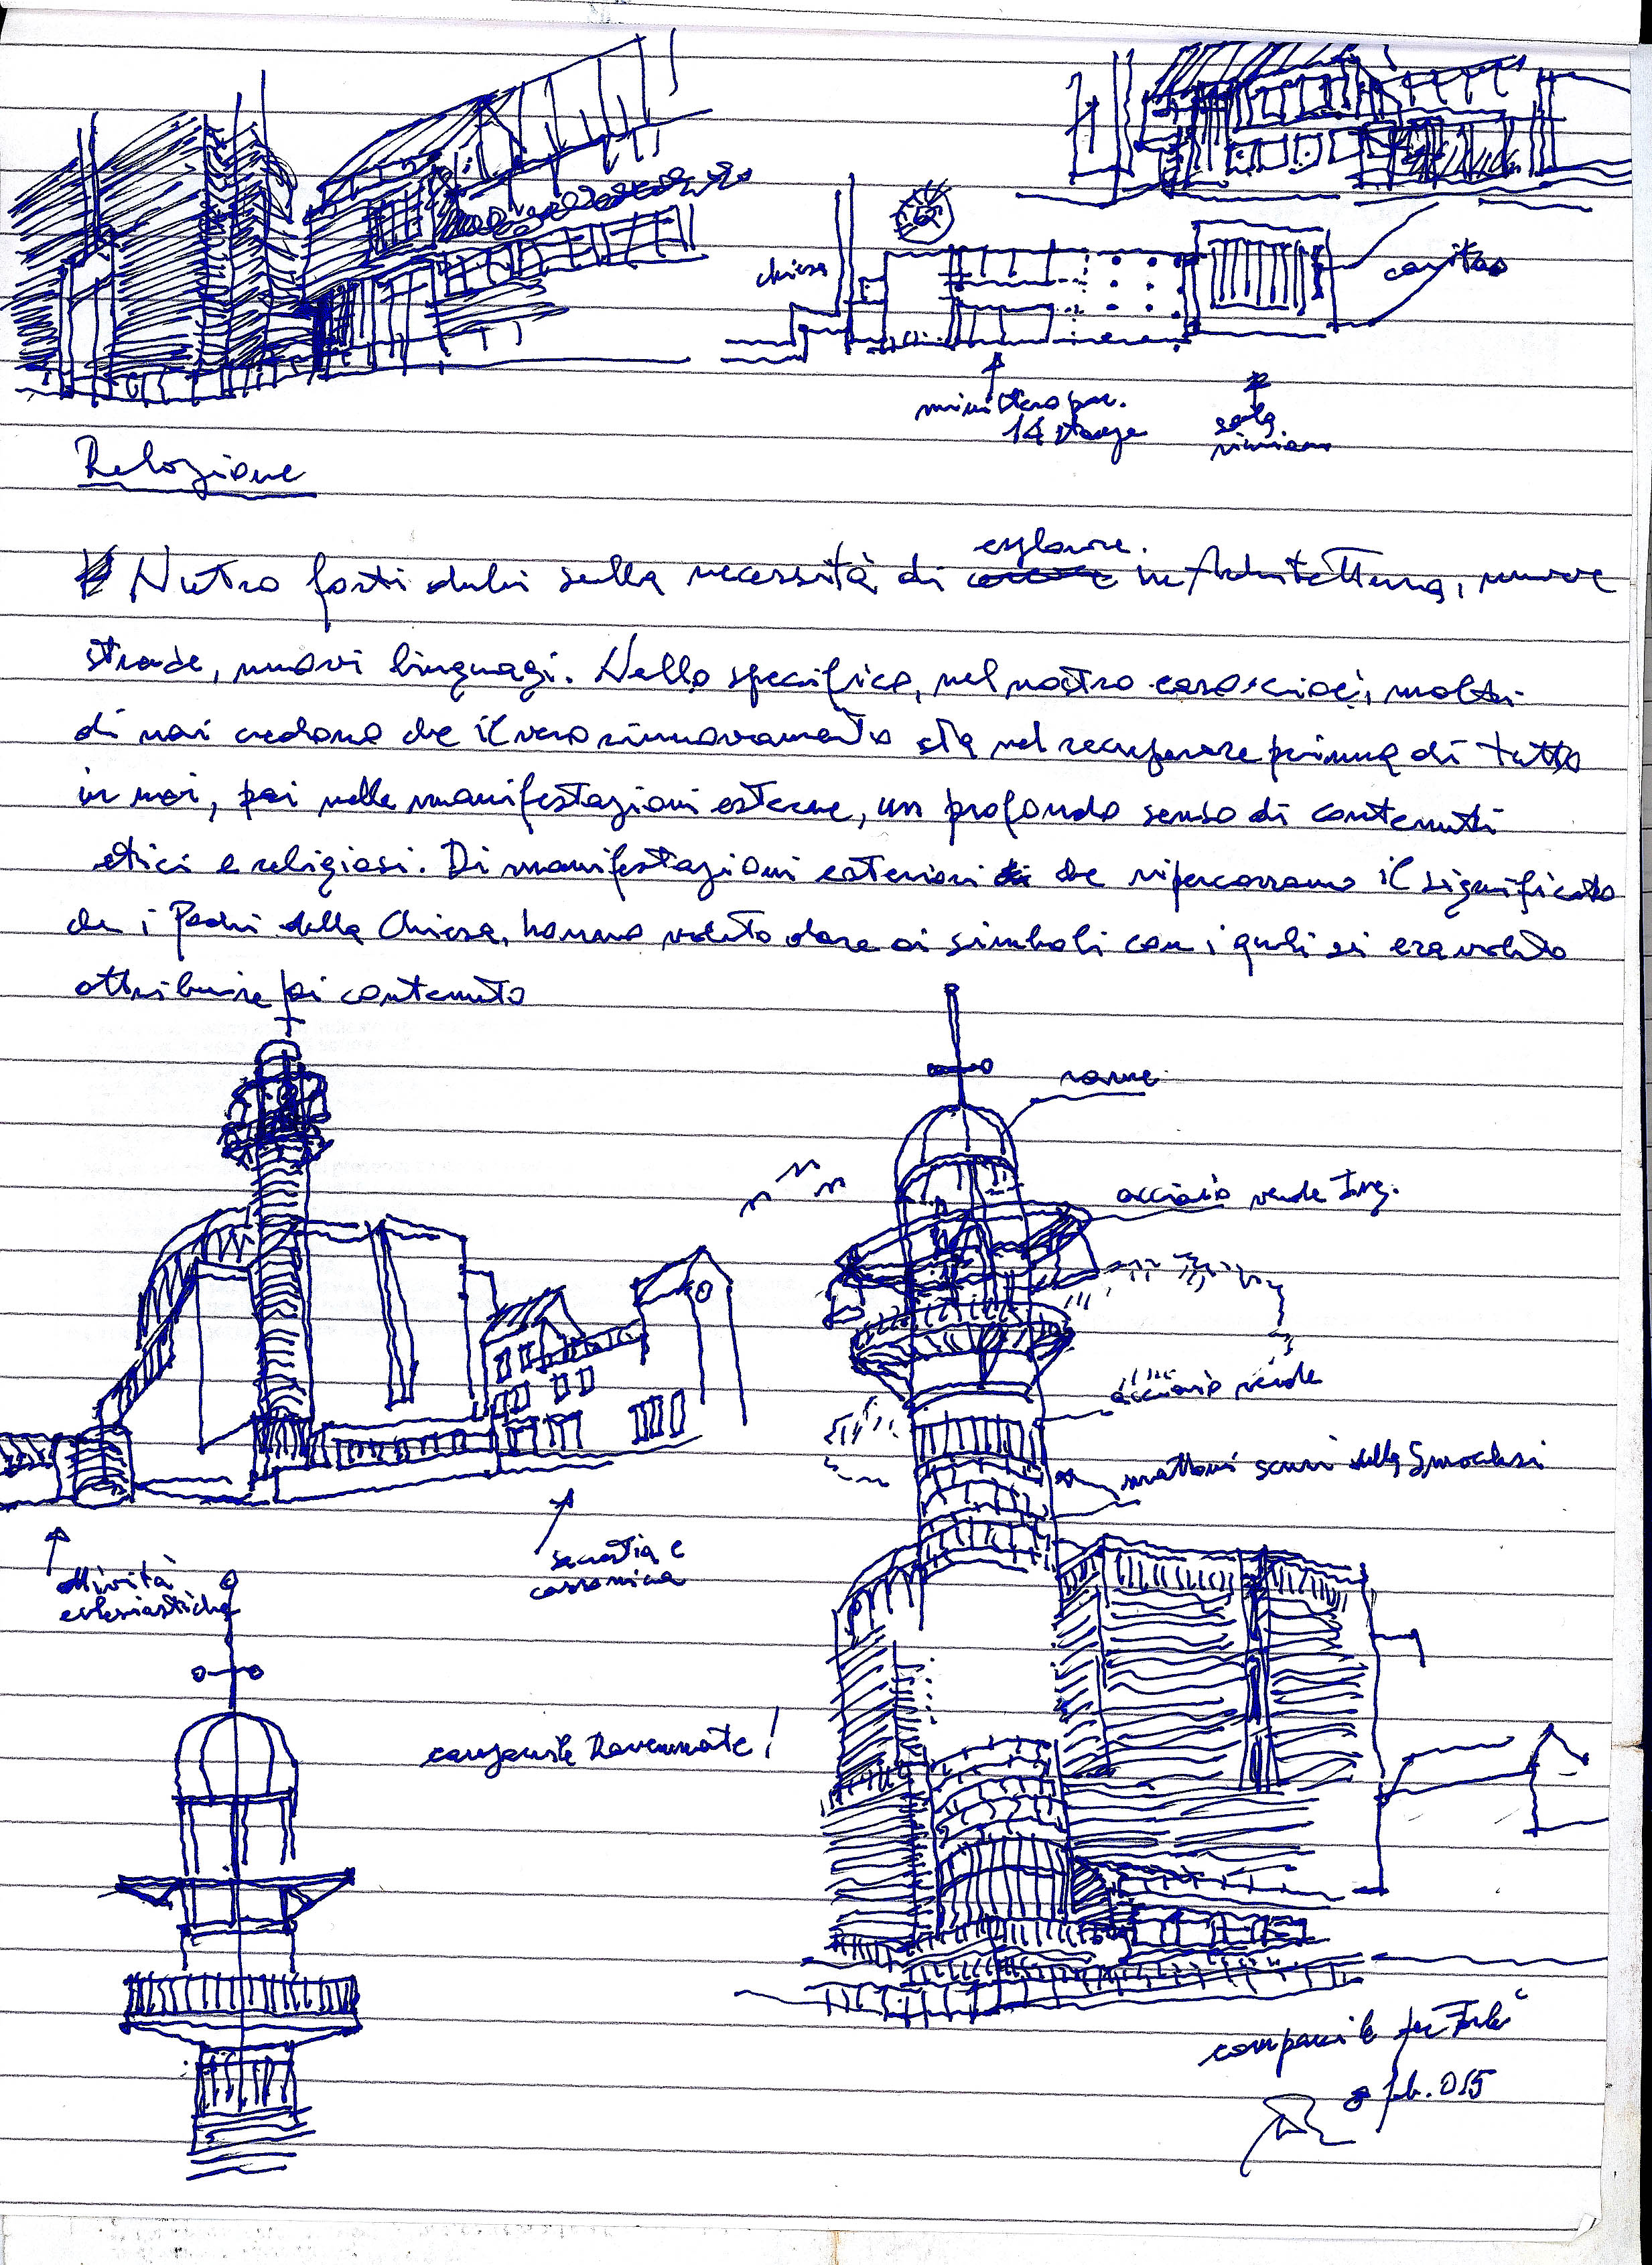 chiesa
caritas
ministero par.
14 stanze
sala
riunioni
Relazione
esplorare
Nutro forti dubbi sulla necessità di in Architettura, nuove
strade, nuovi linguaggi. Nello specifico, nel nostro caso cioè, molti
di noi credono che il vero rinnovamento sta nel recuperare prima di tutto
in noi, poi nelle manifestazioni esterne, un profondo senso di contenuti
etici e religiosi. Di manifestazioni esteriori che ripercorrano il significato
che i Padri della Chiesa, hanno voluto dare ai simboli con i quali si era voluto
attribuire ai contenuto
rame
acciaio verde Ing.
acciaio verde
mattoni scuri della
attività
eclesiastiche
sacrestia e
canonica
campanile Ravennate!
campanile
8 feb. 015